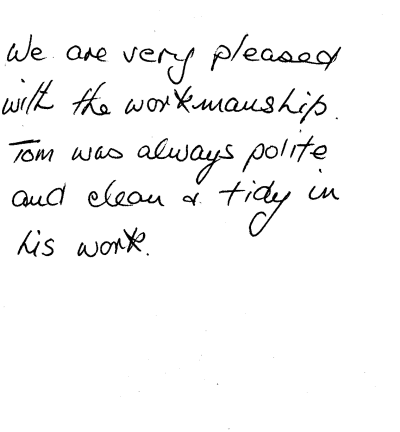 We are very pleased
with the workmanship.
Tom was always polite
and clean & tidy in
his work.